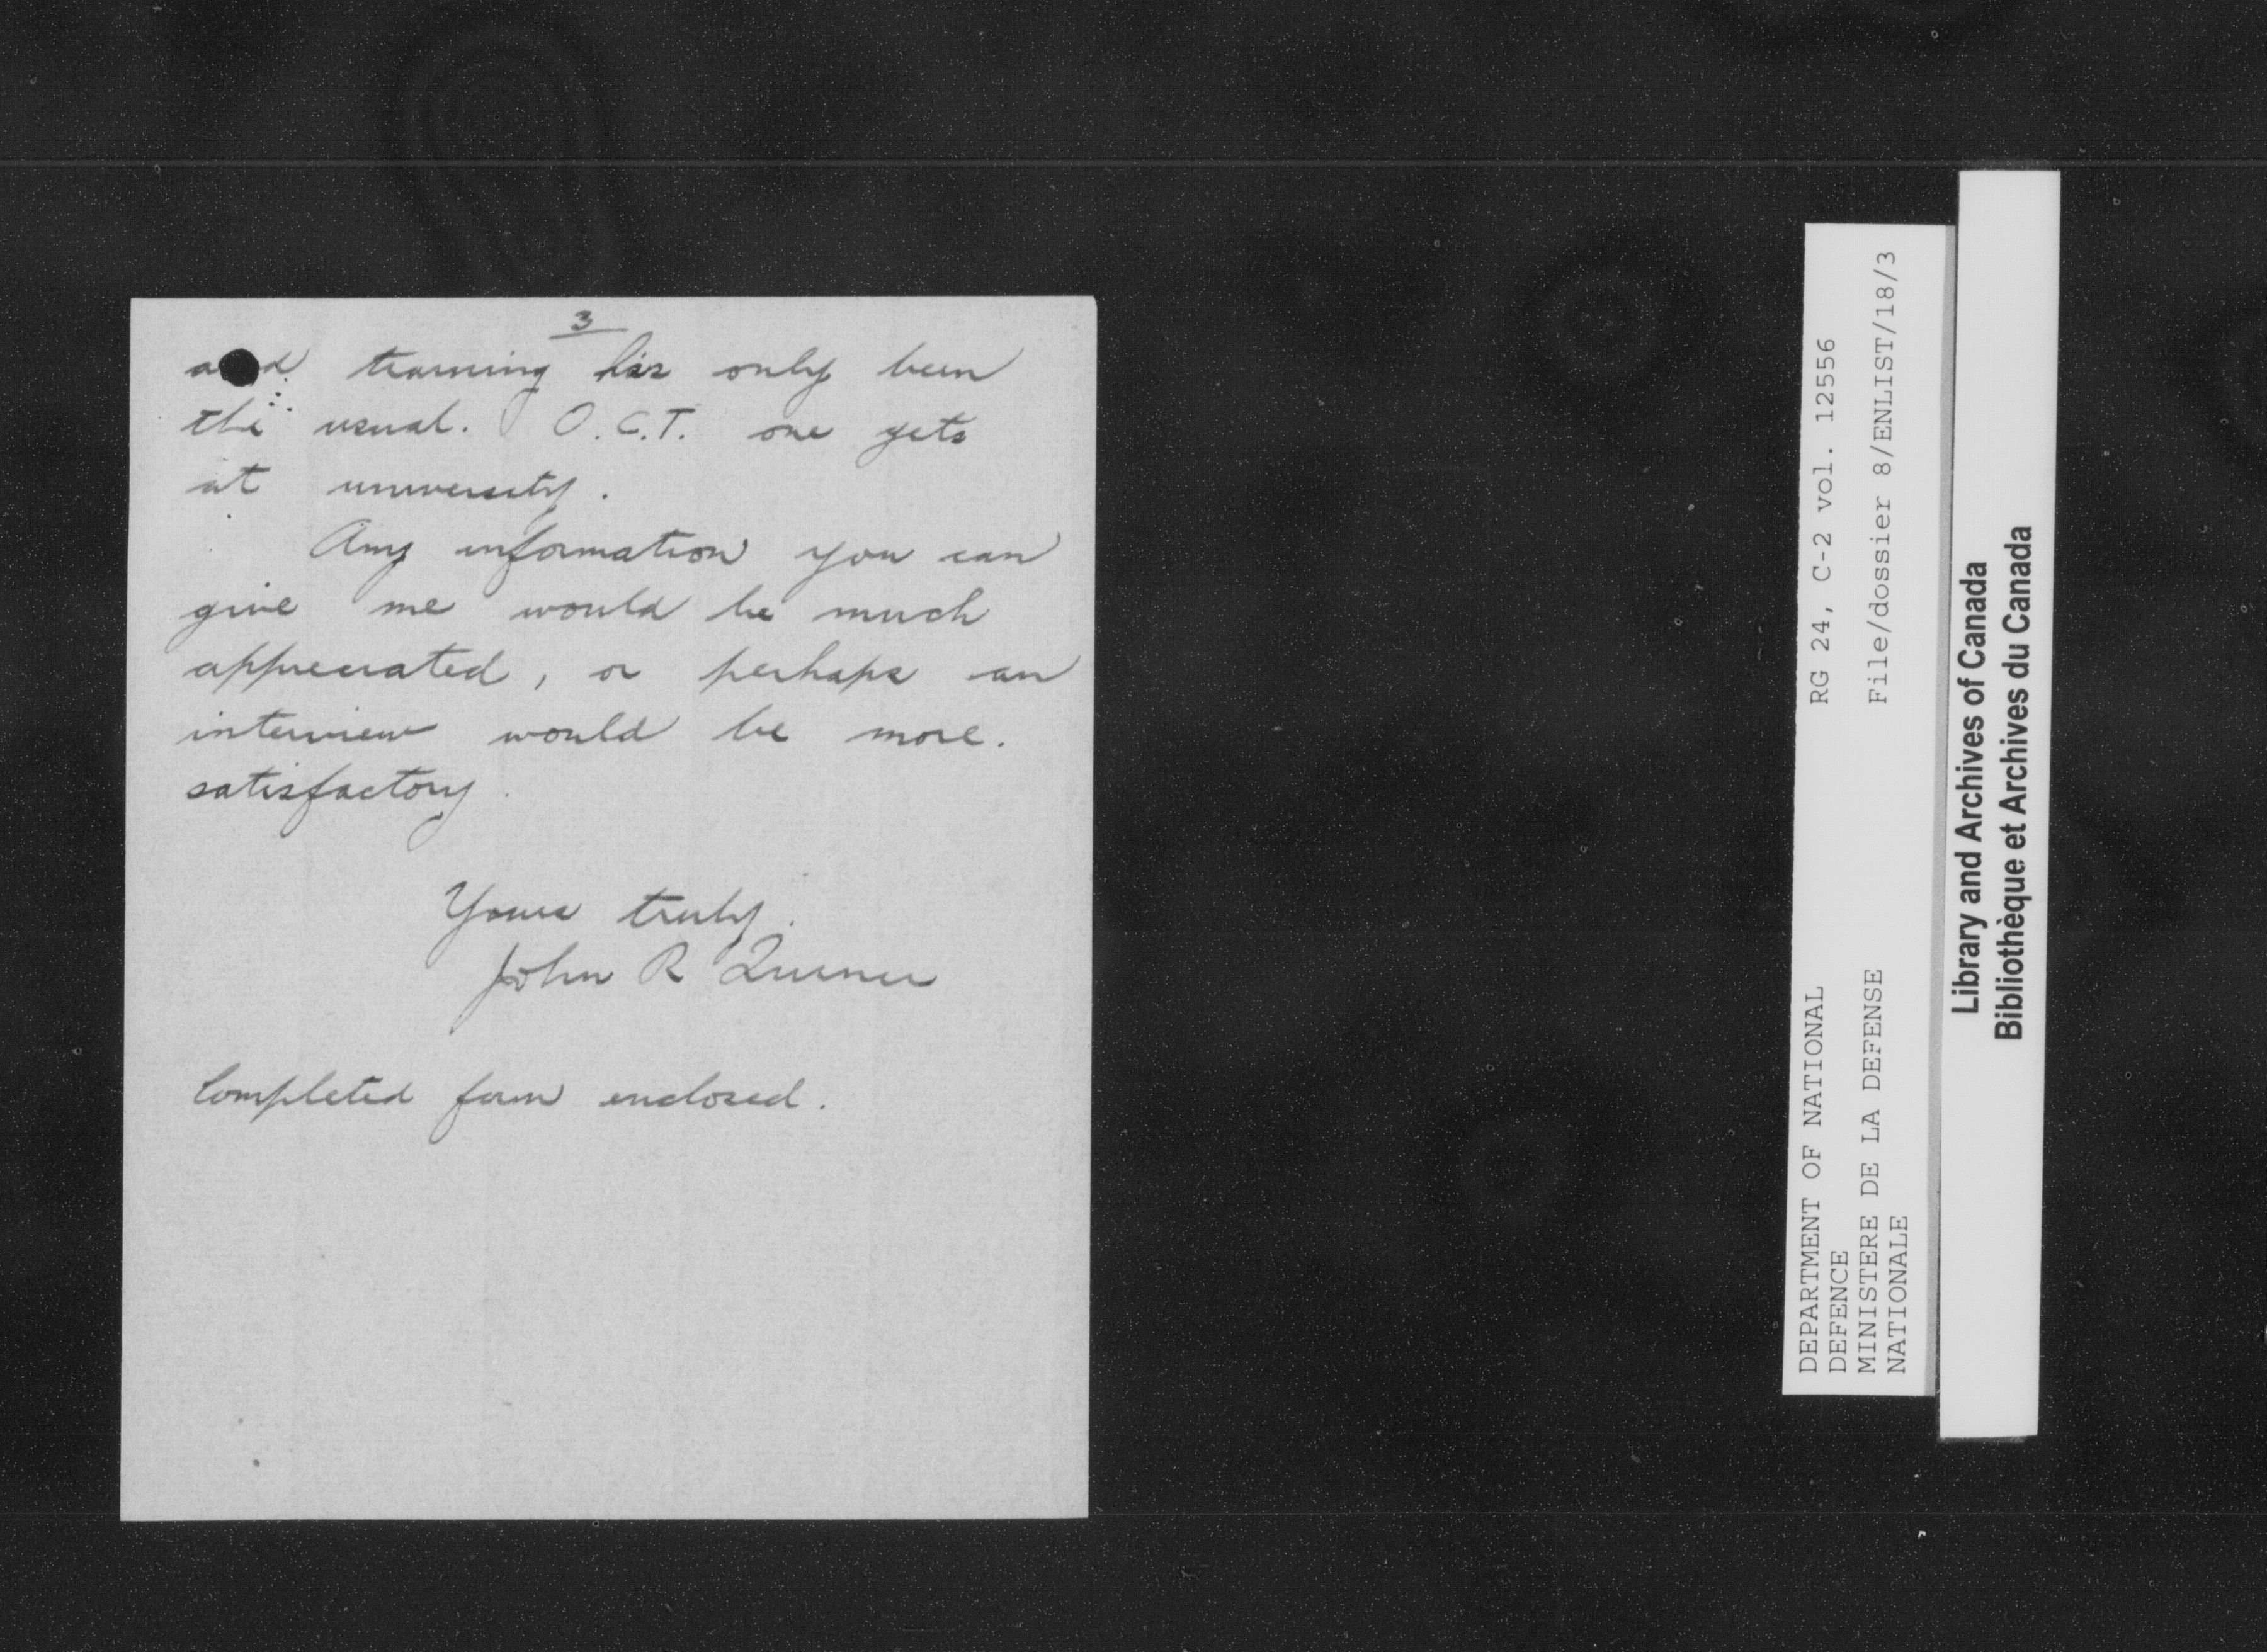 3
and training has only been
the usual. O.C.T. one gets
at university.
Any information you can
give me would be much
appreciated, or perhaps an
interview would be more.
satisfactory.
Yours truly.
John R
Completed form enclosed.
DEPARTMENT OF NATIONAL
DEFENCE
MINISTERE DE LA DEFENSE
NATIONALE
RG 24, C-2 vol. 12556
File/dossier 8/ENLIST/18/3
Library and Archives of Canada
Bibliothèque et Archives du Canada